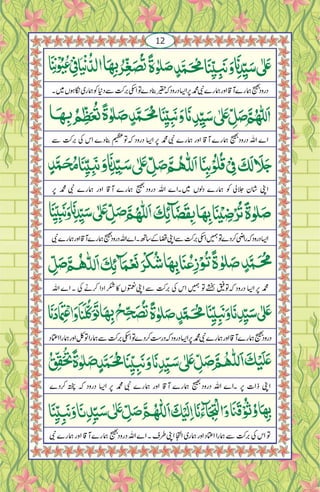 12
عَلٰى سَيِّدِنَا وَنَبِيِّنَا مُحَمَّدٍ صَلٰوةً تُصَغِّرُ بِهَا الدُّنْيَا فِيْ عُيُوْنِنَا
درود بھیج ہمارے آقا اور ہمارے نبی محمد پر ایسا درود کہ حقیر بنادے تو اسکی برکت سے دنیا کو ہماری نگاہوں میں۔
اَللّٰهُمَّ صَلِّ عَلٰى سَيِّدِنَا وَنَبِيِّنَا مُحَمَّدٍ صَلٰوةً تُعَظِّمُ بِهَا
اے اللہ درود بھیج ہمارے آقا اور ہمارے نبی محمد پر ایسا درود کہ تو عظیم بنادے اس کی برکت سے
جَلَالَكَ فِيْ قُلُوْبِنَا اَللّٰهُمَّ صَلِّ عَلٰى سَيِّدِنَا وَنَبِيِّنَا مُحَمَّدٍ
اپنی شان جلالی کو ہمارے دلوں میں۔ اے اللہ درود بھیج ہمارے آقا اور ہمارے نبی محمد پر
صَلٰوةً تُرْضِيْنَا بِهَا بِقَضَائِكَ اَللّٰهُمَّ صَلِّ عَلٰى سَيِّدِنَا وَنَبِيِّنَا
ایسا درود کہ راضی کردے تو ہمیں اسکی برکت سے اپنی قضا کے ساتھ۔ اے اللہ درود بھیج ہمارے آقا اور ہمارے نبی
مُحَمَّدٍ صَلٰوةً تُوْزِعُنَا بِهَا شُكْرَ نَعْمَائِكَ اَللّٰهُمَّ صَلِّ
محمد پر ایسا درود کہ توفیق بخشے تو ہمیں اس کی برکت سے اپنی نعمتوں کا شکر ادا کرنے کی۔ اے اللہ
عَلٰى سَيِّدِنَا وَنَبِيِّنَا مُحَمَّدٍ صَلٰوةً تُصَحِّحُ بِهَا تَوَكُّلَنَا وَاعْتِمَادَنَا
درود بھیج ہمارے آقا اور ہمارے نبی محمد پر ایسا درود کہ درست کردے تو اسکی برکت سے ہمارا توکل اور ہمارا اعتماد
عَلَيْكَ اَللّٰهُمَّ صَلِّ عَلٰى سَيِّدِنَا وَنَبِيِّنَا مُحَمَّدٍ صَلٰوةً تُحَقِّقُ
اپنی ذات پر۔ اے اللہ درود بھیج ہمارے آقا اور ہمارے نبی محمد پر ایسا درود کہ پختہ کردے
بِهَا وُثُوْقَنَا وَالْتِجَاءَنَا اِلَيْكَ اَللّٰهُمَّ صَلِّ عَلٰى سَيِّدِنَا وَنَبِيِّنَا
تو اس کی برکت سے ہمارا اعتماد اور ہماری التجا اپنی طرف۔ اے اللہ درود بھیج ہمارے آقا اور ہمارے نبی